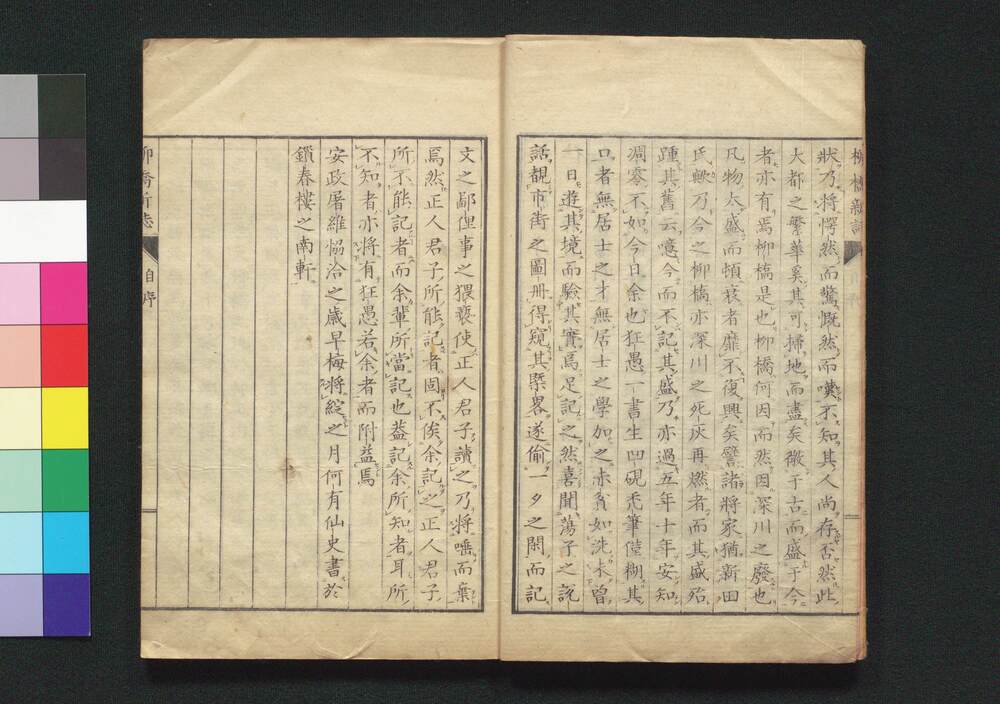 柳橋新誌
狀乃將愕然而驚慨然而嘆不知其人尚存否然此
大都之繁華奚其可掃地而盡矣徵于古而盛于今
者亦有焉柳橋是也柳橋何因而然因深川之廢也
凡物太盛而頓衰者靡不復興矣譬諸將家猶新田
氏蹶乃今之柳橋亦深川之死灰再燃者而其盛殆
踵其舊云噫今而不記其盛乃亦過五年十年安知
凋零不如今日余也狂愚一書生凹硯禿筆僅糊其
口者無居士之才無居士之學加之赤貧如洗未曾
一日遊其境而驗其實焉足記之然喜聞蕩子之說
話覩市街之圖冊得窺其槩畧遂偷一夕之閑而記
文之鄙俚事之猥褻使正人君子讀之乃將唾而棄
焉然正人君子所能記者固不俟余記之正人君子
所不能記者而余輩所當記也蓋記余所知者耳所
不知者亦將有狂愚若余者而附益焉
安政屠維協洽之歲早梅將綻之月何有仙史書於
鎖春樓之南軒
柳橋新志
自序